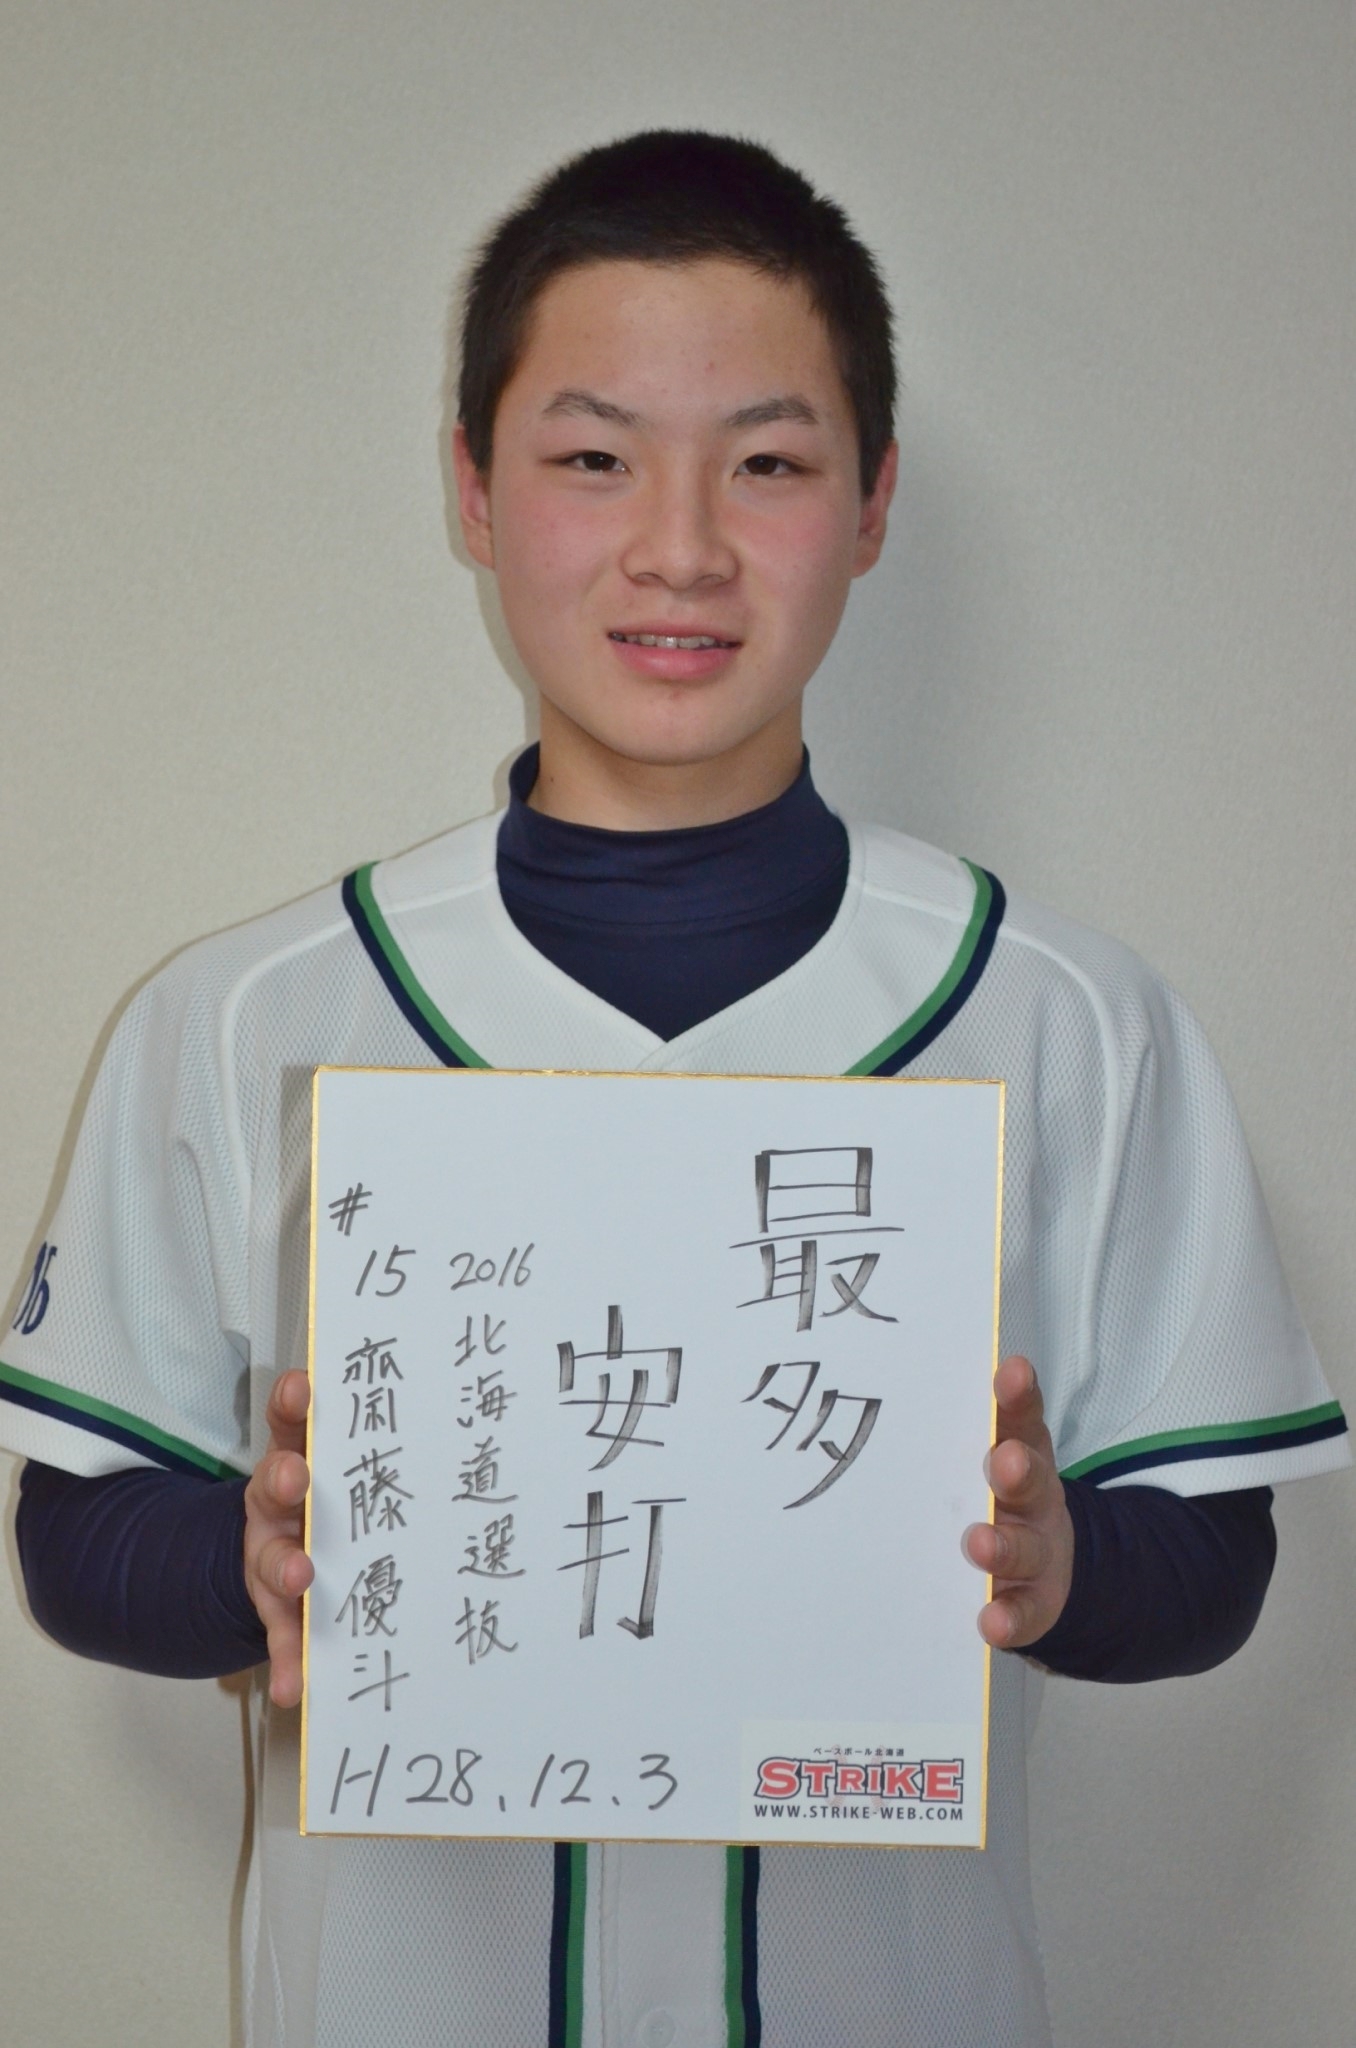 最多
安打
2016 北海道選抜
#15 齋藤 優斗
H28.12.3
ベースボール北海道
STRIKE
WWW.STRIKE-WEB.COM